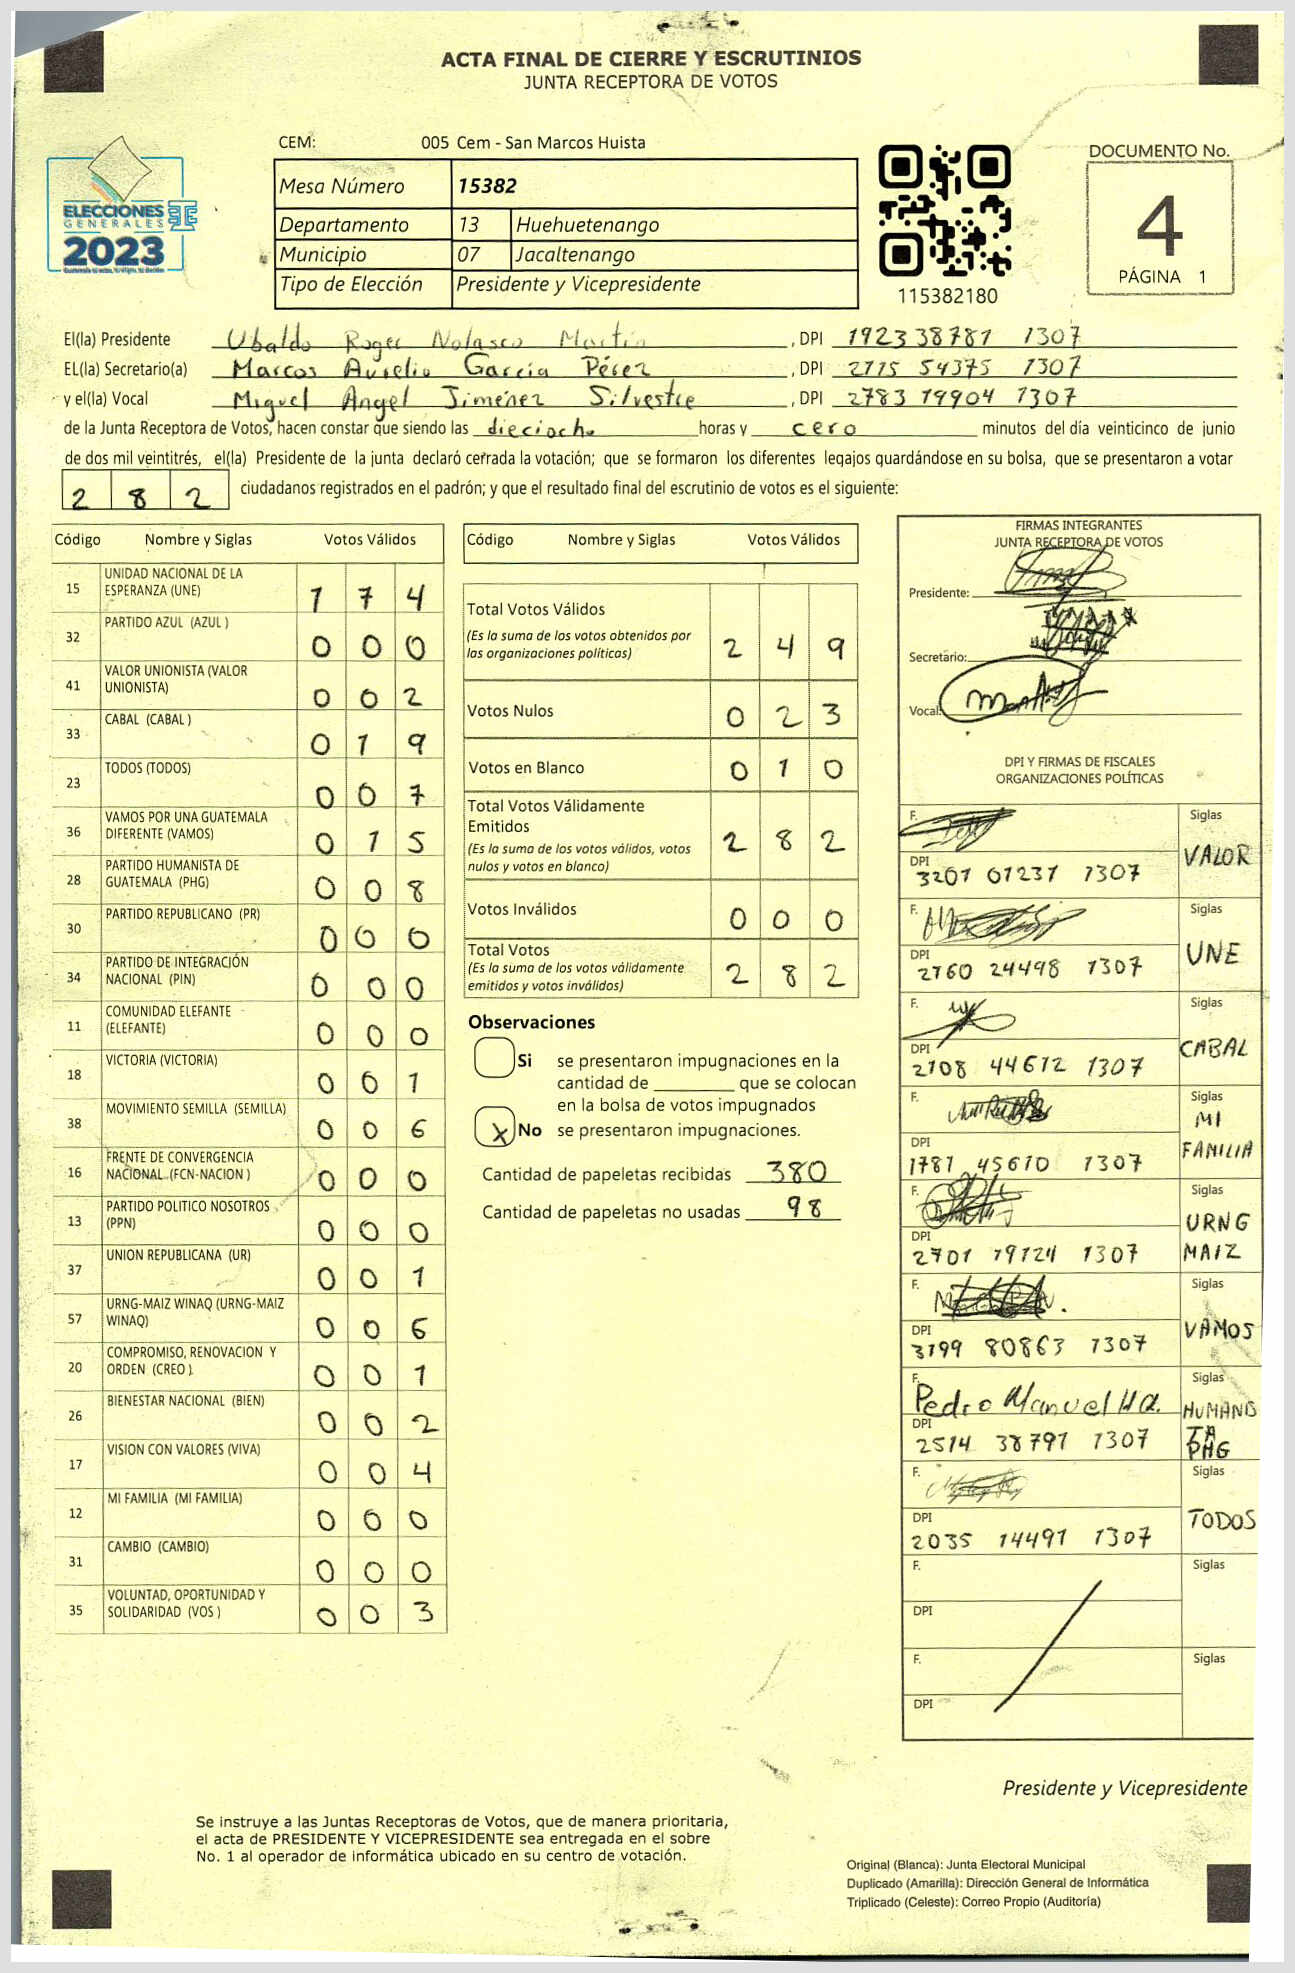 ACTA FINAL DE CIERRE Y ESCRUTINIOS
JUNTA RECEPTORA DE VOTOS
ELECCIONES
GENERALES
2023
CEM: 005 Cem - San Marcos Huista
Mesa Número 15382
Departamento 13 Huehuetenango
Municipio 07 Jacaltenango
Tipo de Elección Presidente y Vicepresidente
115382180
DOCUMENTO No.
4
PÁGINA 1
El(la) Presidente Ubaldo Roger Nolasco Martin, DPI 1923 38781 1307
EL(la) Secretario(a) Marcos Aurelio García Pérez, DPI 2115 54375 1307
y el(la) Vocal Miguel Angel Jiménez Silvestre, DPI 2783 19904 1307
de la Junta Receptora de Votos, hacen constar que siendo las dieciocho horas y cero minutos del día veinticinco de junio
de dos mil veintitrés, el(la) Presidente de la junta declaró cerrada la votación; que se formaron los diferentes legajos guardándose en su bolsa, que se presentaron a votar
2 8 2 ciudadanos registrados en el padrón; y que el resultado final del escrutinio de votos es el siguiente:
Código Nombre y Siglas Votos Válidos
15 UNIDAD NACIONAL DE LA ESPERANZA (UNE) 1 7 4
32 PARTIDO AZUL (AZUL ) 0 0 0
41 VALOR UNIONISTA (VALOR UNIONISTA) 0 0 2
33 CABAL (CABAL ) 0 1 9
23 TODOS (TODOS) 0 0 7
36 VAMOS POR UNA GUATEMALA DIFERENTE (VAMOS) 0 1 5
28 PARTIDO HUMANISTA DE GUATEMALA (PHG) 0 0 8
30 PARTIDO REPUBLICANO (PR) 0 0 0
34 PARTIDO DE INTEGRACIÓN NACIONAL (PIN) 0 0 0
11 COMUNIDAD ELEFANTE (ELEFANTE) 0 0 0
18 VICTORIA (VICTORIA) 0 0 1
38 MOVIMIENTO SEMILLA (SEMILLA) 0 0 6
16 FRENTE DE CONVERGENCIA NACIONAL (FCN-NACION ) 0 0 0
13 PARTIDO POLITICO NOSOTROS (PPN) 0 0 0
37 UNION REPUBLICANA (UR) 0 0 1
57 URNG-MAIZ WINAQ (URNG-MAIZ WINAQ) 0 0 6
20 COMPROMISO, RENOVACION Y ORDEN (CREO ) 0 0 1
26 BIENESTAR NACIONAL (BIEN) 0 0 2
17 VISION CON VALORES (VIVA) 0 0 4
12 MI FAMILIA (MI FAMILIA) 0 0 0
31 CAMBIO (CAMBIO) 0 0 0
35 VOLUNTAD, OPORTUNIDAD Y SOLIDARIDAD (VOS ) 0 0 3
Código Nombre y Siglas Votos Válidos
Total Votos Válidos
(Es la suma de los votos obtenidos por las organizaciones políticas) 2 4 9
Votos Nulos 0 2 3
Votos en Blanco 0 1 0
Total Votos Válidamente Emitidos
(Es la suma de los votos válidos, votos nulos y votos en blanco) 2 8 2
Votos Inválidos 0 0 0
Total Votos
(Es la suma de los votos válidamente emitidos y votos inválidos) 2 8 2
Observaciones
Si se presentaron impugnaciones en la
cantidad de ________ que se colocan
en la bolsa de votos impugnados
X No se presentaron impugnaciones.
Cantidad de papeletas recibidas 380
Cantidad de papeletas no usadas 98
FIRMAS INTEGRANTES
JUNTA RECEPTORA DE VOTOS
Presidente:
Secretario:
Vocal:
DPI Y FIRMAS DE FISCALES
ORGANIZACIONES POLÍTICAS
F. Siglas VALOR
DPI 3201 01231 1307
F. Siglas UNE
DPI 2760 24498 1307
F. Siglas CABAL
DPI 2108 44612 1307
F. Siglas MI FAMILIA
DPI 1781 45610 1307
F. Siglas URNG MAIZ
DPI 2701 19124 1307
F. Siglas VAMOS
DPI 3199 80863 1307
F. Pedro Manuel Siglas HUMANISTA PHG
DPI 2514 38791 1307
F. Siglas TODOS
DPI 2035 14491 1307
F. Siglas
DPI
F. Siglas
DPI
Presidente y Vicepresidente
Se instruye a las Juntas Receptoras de Votos, que de manera prioritaria,
el acta de PRESIDENTE Y VICEPRESIDENTE sea entregada en el sobre
No. 1 al operador de informática ubicado en su centro de votación.
Original (Blanca): Junta Electoral Municipal
Duplicado (Amarilla): Dirección General de Informática
Triplicado (Celeste): Correo Propio (Auditoría)